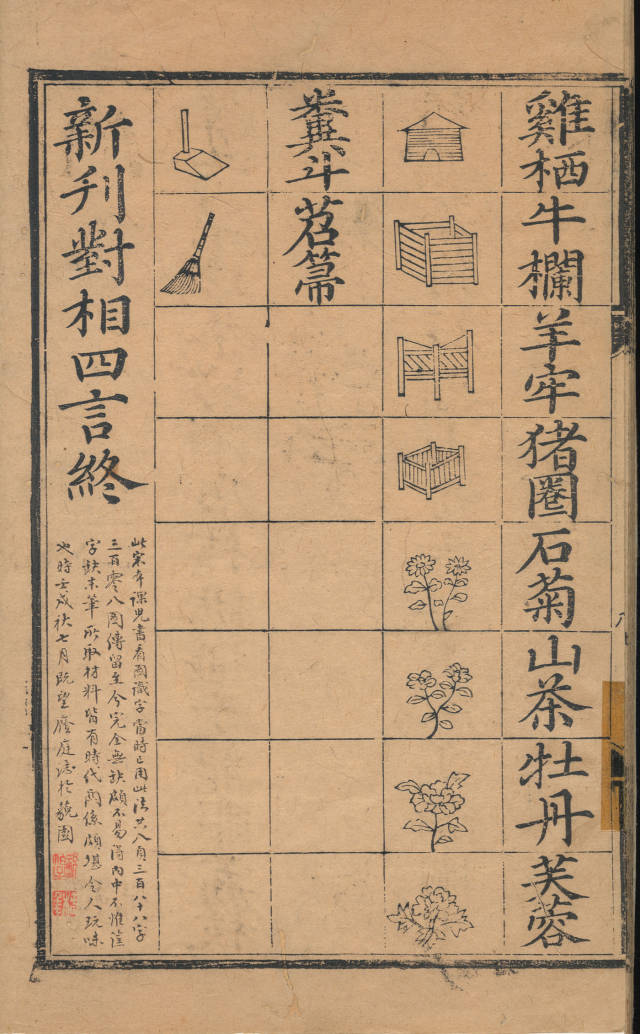 雞栖牛欄羊牢猪圈石菊山茶牡丹芙蓉
糞斗苕箒
新刊對相四言終
此宋本課兒書看圖識字當時已用此法共八頁三百八十八字
三百零八圖傳留至今完全無缺頗不易得內中不惟匡
字缺末筆所取材料皆有時代關係頗堪令人玩味
也時壬戌秋七月既望 庭 於 園